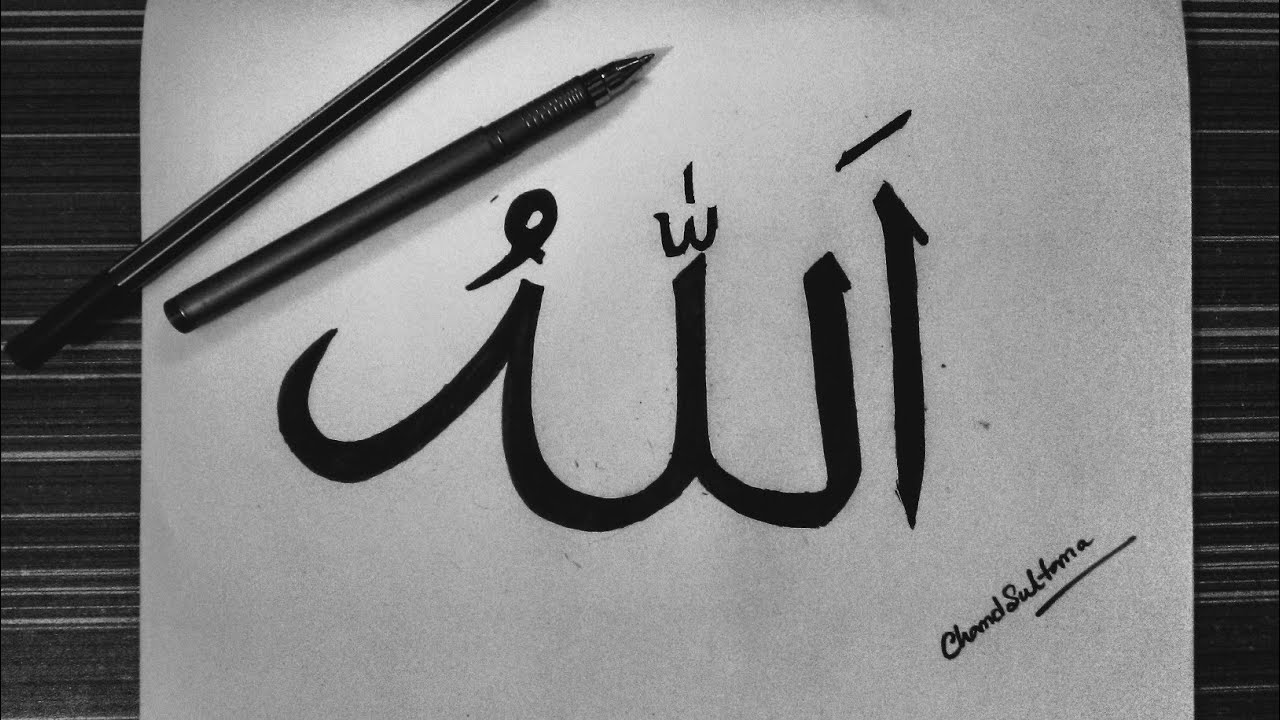 اَللّٰهُ
Chand Sultana